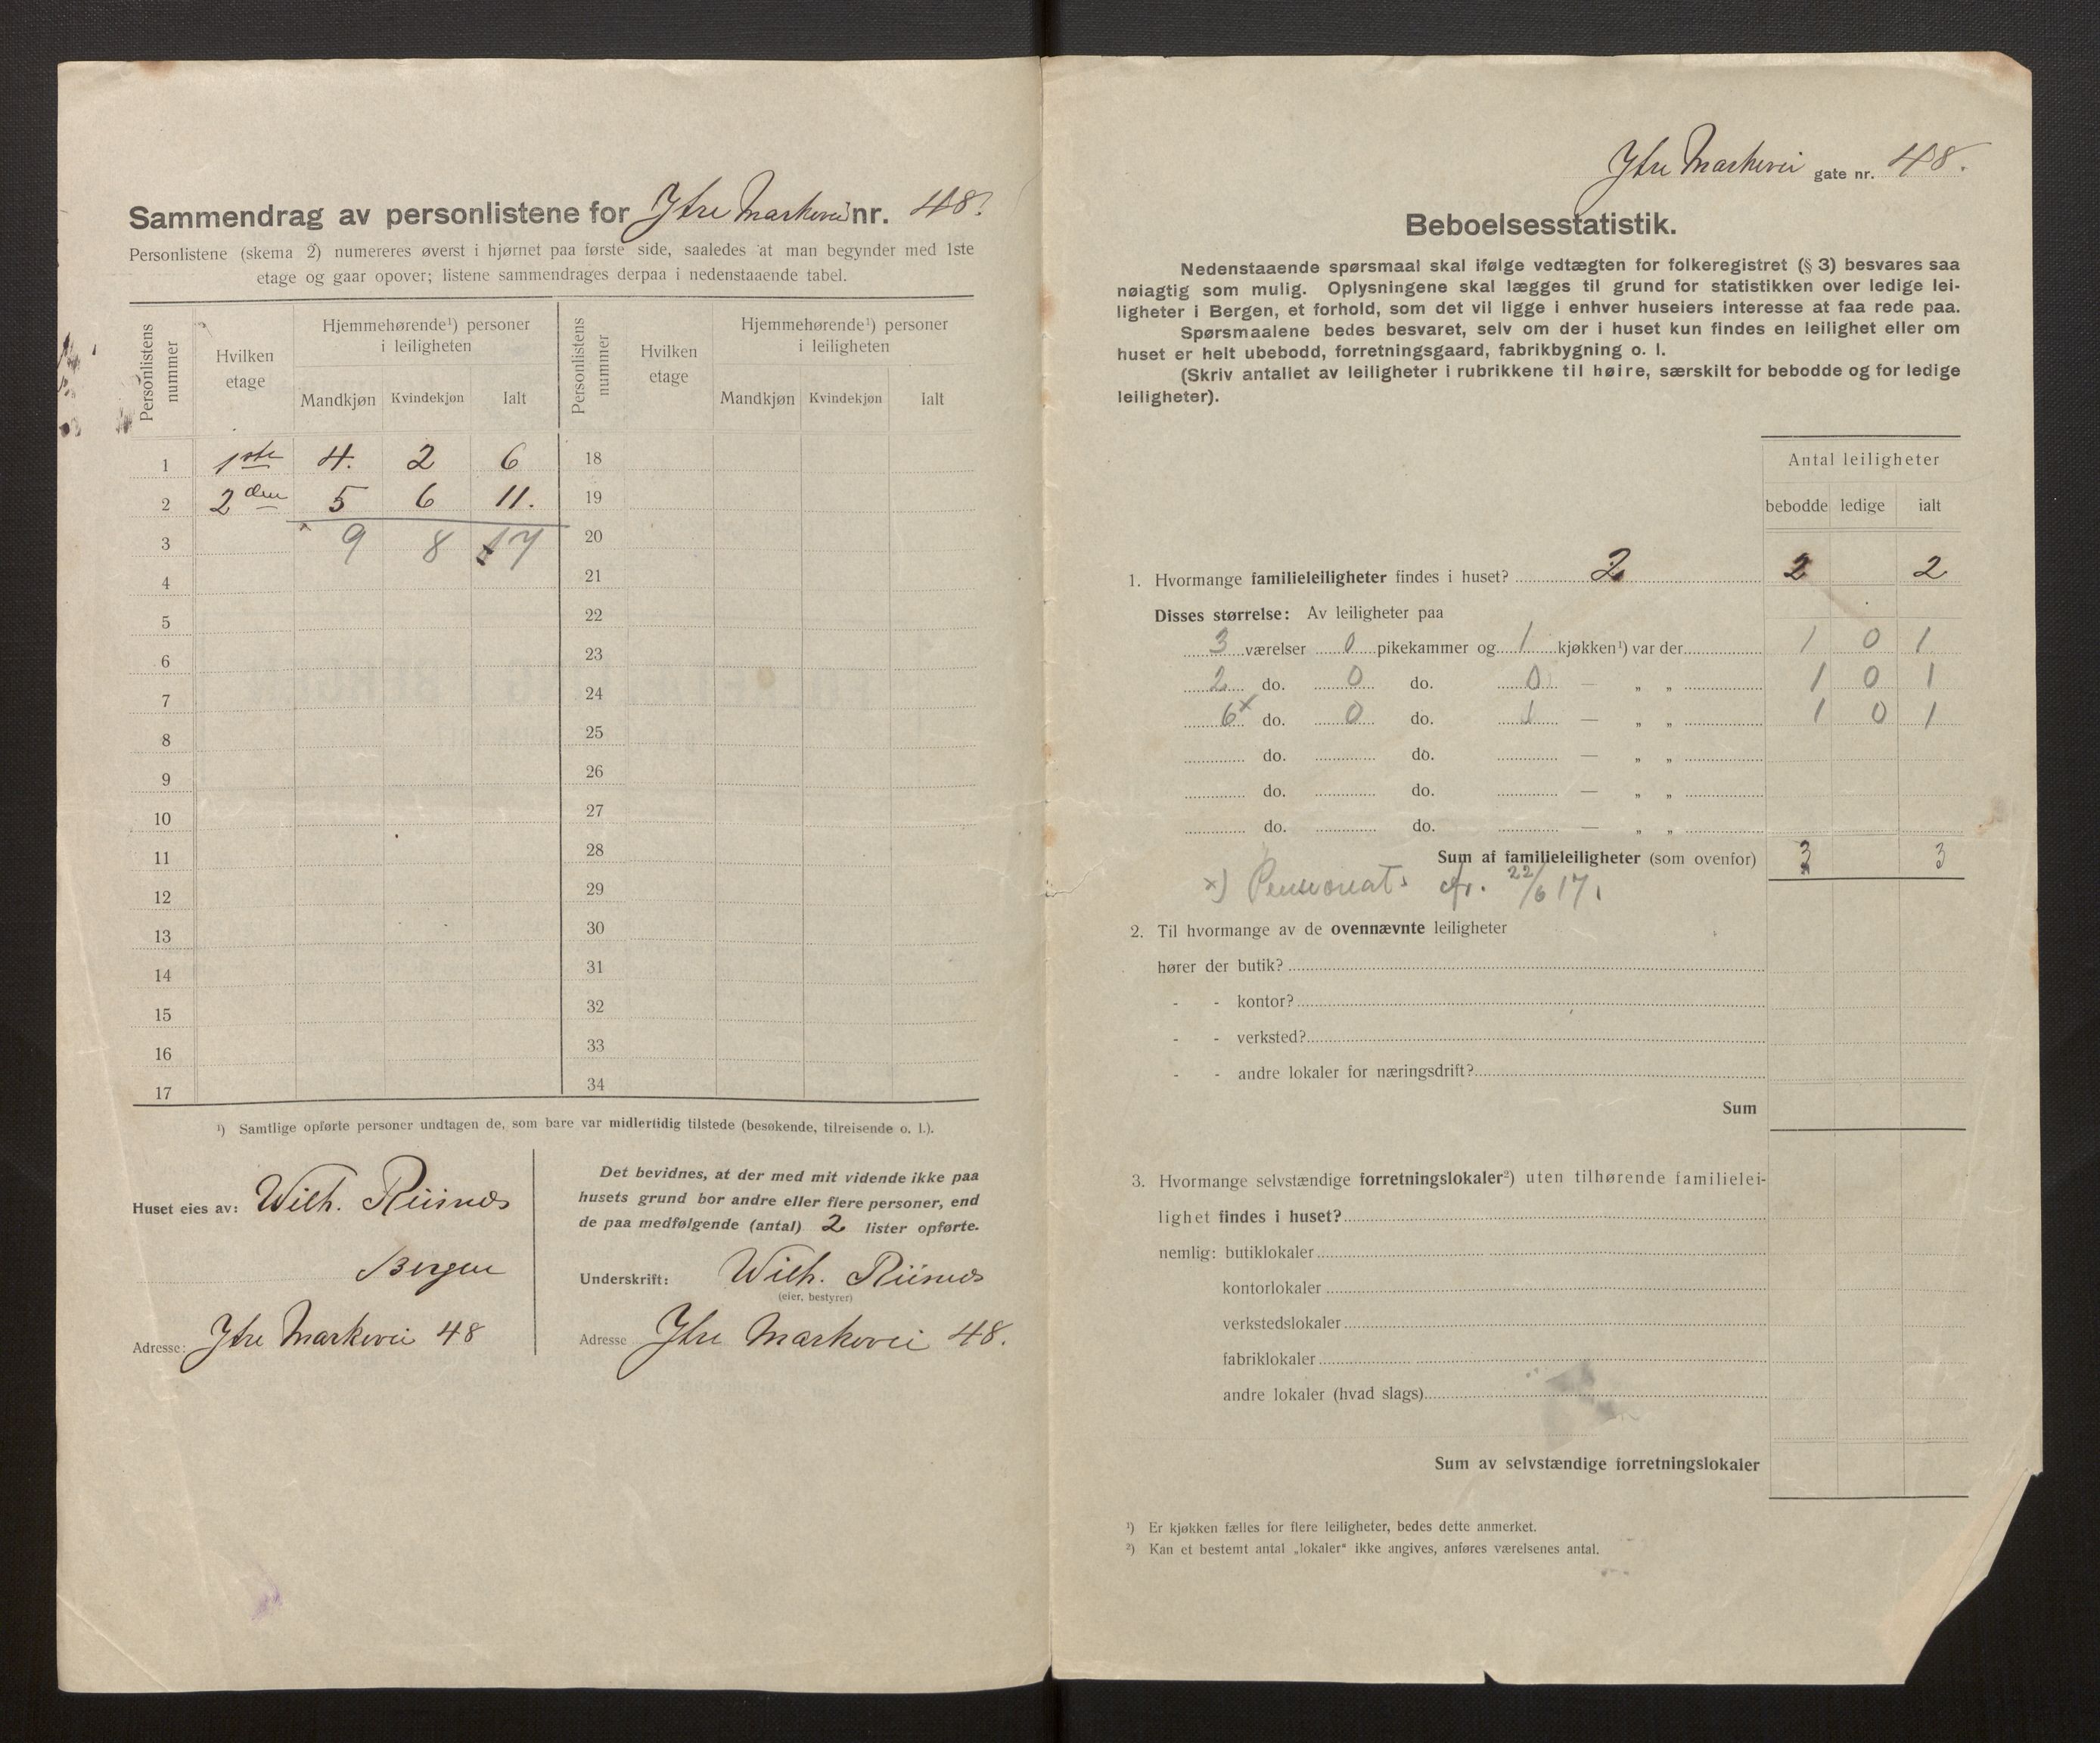 Sammendrag av personlistene for Ytre Markevei nr. 48.
Personlistene (skema 2) numereres øverst i hjørnet paa første side, saaledes at man begynder med 1ste
etage og gaar opover; listene sammendrages derpaa i nedenstaaende tabel.
Personlistens nummer
Hvilken etage
Hjemmehørende¹) personer i leiligheten
Mandkjøn Kvindekjøn Ialt
Personlistens nummer
Hvilken etage
Hjemmehørende¹) personer i leiligheten
Mandkjøn Kvindekjøn Ialt
1 1ste 4. 2 6 18
2 2den 5 6 11. 19
3 9 8 17 20
4 21
5 22
6 23
7 24
8 25
9 26
10 27
11 28
12 29
13 30
14 31
15 32
16 33
17 34
¹) Samtlige opførte personer undtagen de, som bare var midlertidig tilstede (besøkende, tilreisende o. l.).
Huset eies av: Wilh. Riisnæs
Bergen
Adresse: Ytre Markevei 48
Det bevidnes, at der med mit vidende ikke paa
husets grund bor andre eller flere personer, end
de paa medfølgende (antal) 2 lister opførte.
Underskrift: Wilh. Riisnæs
(eier, bestyrer)
Adresse Ytre Markevei 48.
Ytre Markevei gate nr. 48.
Beboelsesstatistik.
Nedenstaaende spørsmaal skal ifølge vedtægten for folkeregistret (§ 3) besvares saa
nøiagtig som mulig. Oplysningene skal lægges til grund for statistikken over ledige lei-
ligheter i Bergen, et forhold, som det vil ligge i enhver huseiers interesse at faa rede paa.
Spørsmaalene bedes besvaret, selv om der i huset kun findes en leilighet eller om
huset er helt ubebodd, forretningsgaard, fabrikbygning o. l.
(Skriv antallet av leiligheter i rubrikkene til høire, særskilt for bebodde og for ledige
leiligheter).
Antal leiligheter
bebodde ledige ialt
1. Hvormange familieleiligheter findes i huset? 2 2 2
Disses størrelse: Av leiligheter paa
3 værelser 0 pikekammer og 1 kjøkken¹) var der 1 0 1
2 do. 0 do. 0 — „ „ 1 0 1
6x do. 0 do. 1 — „ „ 1 0 1
do. do. — „ „
do. do. — „ „
do. do. — „ „
Sum af familieleiligheter (som ovenfor) 3 3
x) Pensionat 22/6 17.
2. Til hvormange av de ovennævnte leiligheter
hører der butik?
- - kontor?
- - verksted?
- - andre lokaler for næringsdrift?
Sum
3. Hvormange selvstændige forretningslokaler²) uten tilhørende familielei-
lighet findes i huset?
nemlig: butiklokaler
kontorlokaler
verkstedslokaler
fabriklokaler
andre lokaler (hvad slags)
Sum av selvstændige forretningslokaler
¹) Er kjøkken fælles for flere leiligheter, bedes dette anmerket.
²) Kan et bestemt antal „lokaler“ ikke angives, anføres værelsenes antal.